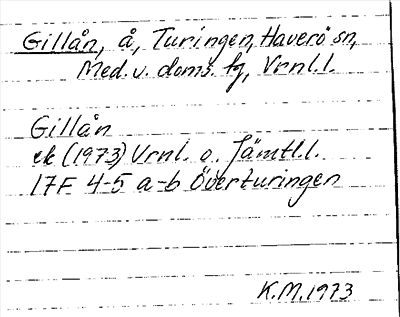 Gillån, å, Turingen, Haverö sn,
Med. v. doms. fg, Vrnl.l.
Gillån
ek (1973) Vrnl. o. Jämtl.l.
17F 4-5 a-b Överturingen
K.M. 1973